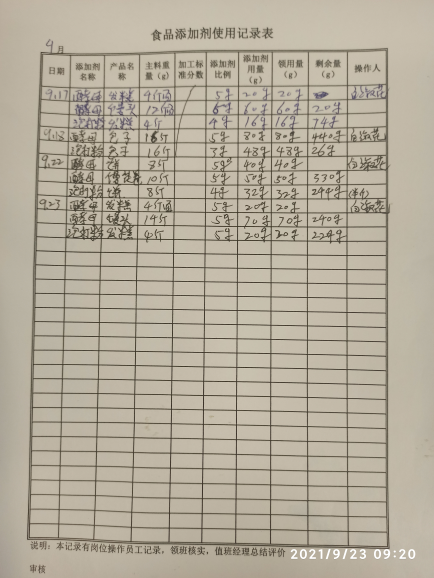 食品添加剂使用记录表
9月
日期 添加剂名称 产品名称 主料重量（g） 加工标准分数 添加剂比例 添加剂用量（g） 领用量（g） 剩余量（g） 操作人
9.17 酵母 发糕 4斤 5g 20g 20g
酵母 12斤 5g 60g 60g 20g
泡打粉 发糕 4斤 4g 16g 16g 74g
9.18 酵母 包子 16斤 5g 80g 80g 440g
泡打粉 包子 16斤 3g 48g 48g 26g
9.22 酵母 饼 8斤 5g 40g 40g
酵母 10斤 5g 50g 50g 330g
泡打粉 饼 8斤 4g 32g 32g 244g
9.23 酵母 发糕 4斤 5g 20g 20g
酵母 馒头 14斤 5g 70g 70g 240g
泡打粉 发糕 4斤 5g 20g 20g 224g
说明：本记录有岗位操作员工记录，领班核实，值班经理总结评价
2021/9/23 09:20
审核